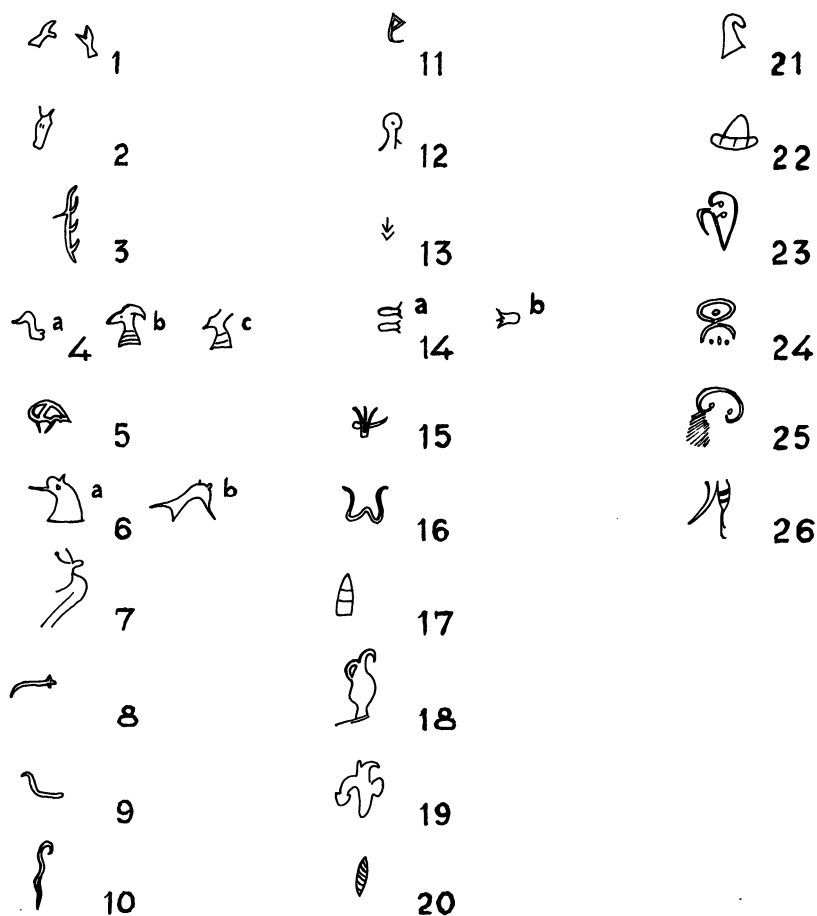 1
2
3
a 4 b c
5
a 6 b
7
8
9
10
11
12
13
a 14 b
15
16
17
18
19
20
21
22
23
24
25
26